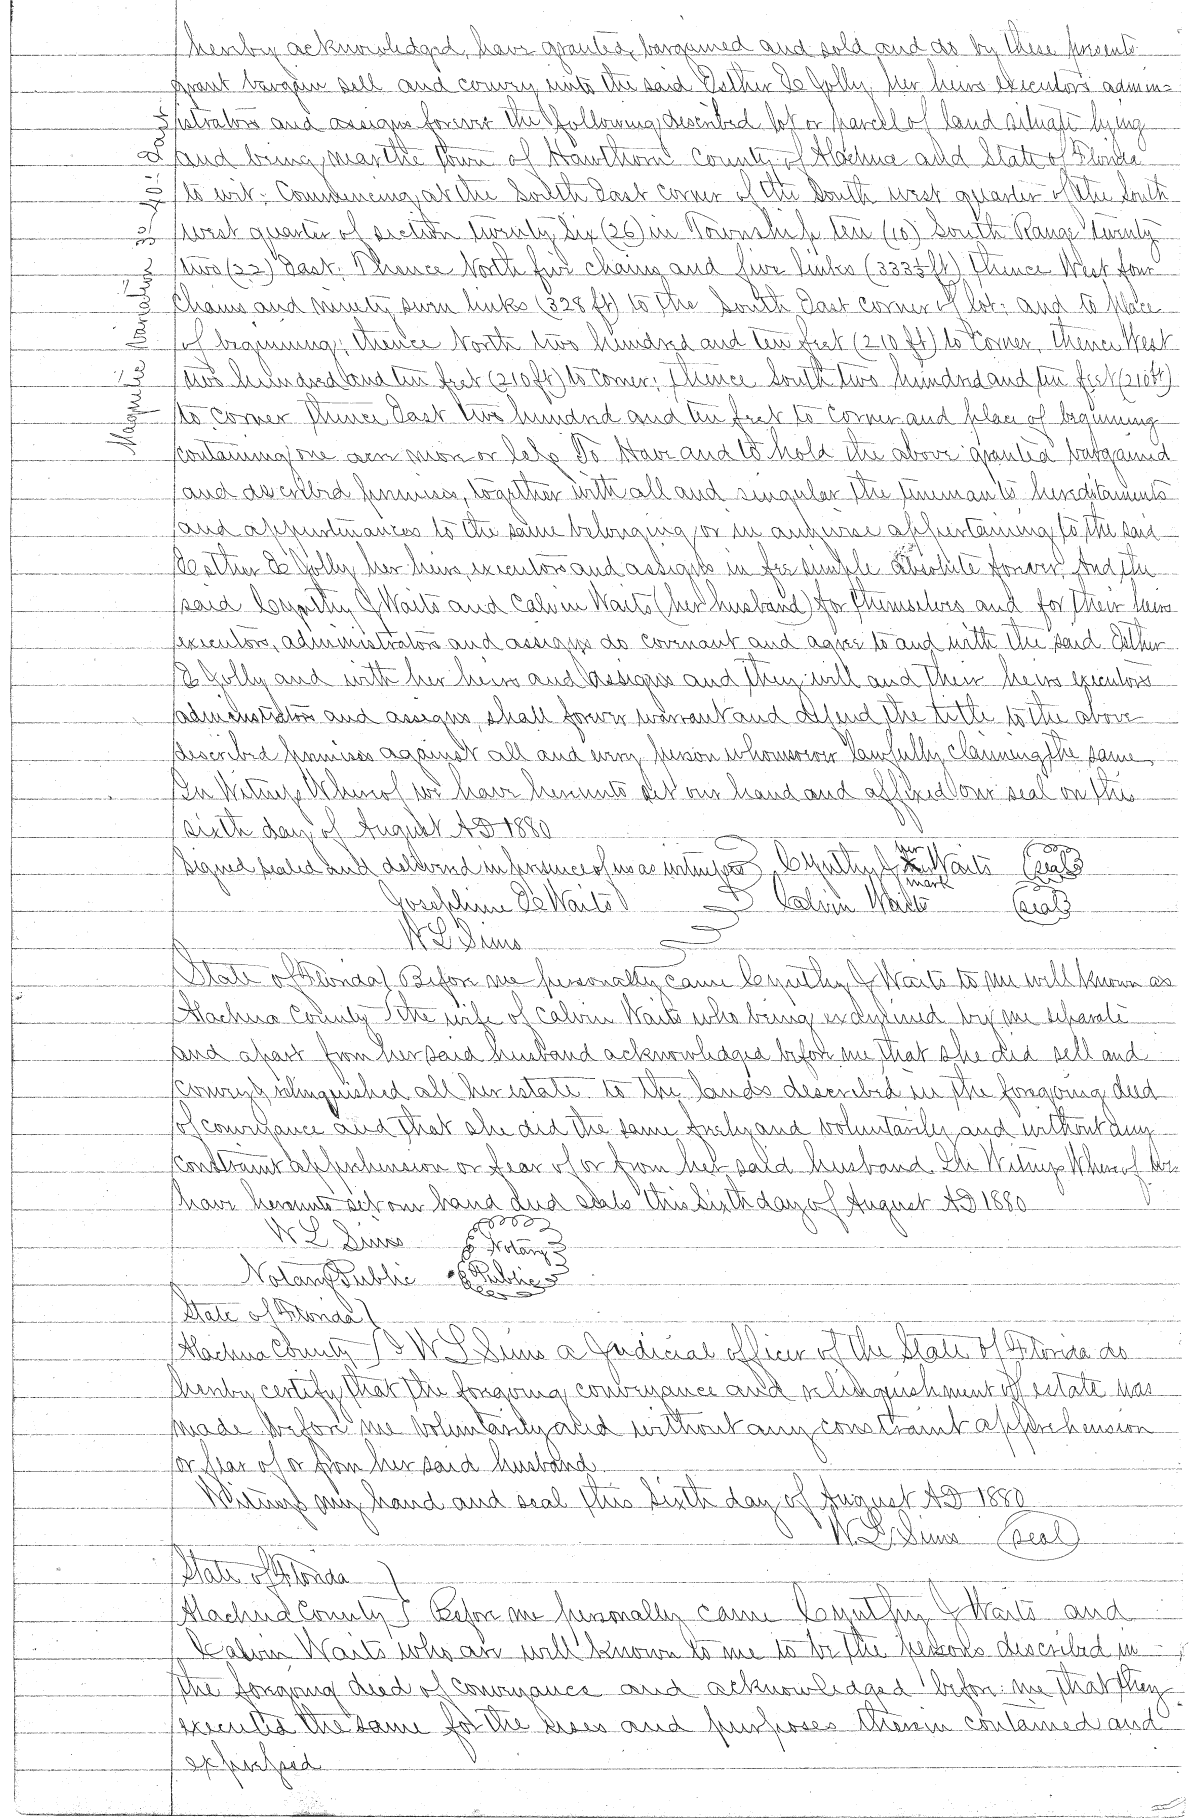 hereby acknowledged, have granted, bargained and sold and do by these presents
grant bargain sell and convey unto the said Esther E Jolly her heirs executors admin=
istrators and assigns forever the following described lot or parcel of land situate lying
and being near the Town of Hawthorn County of Alachua and State of Florida
to wit: Commencing at the South East corner of the South west quarter of the South
west quarter of section twenty six (26) in Township ten (10) South Range twenty
two (22) East: Thence North five chains and five links (333⅓ ft) Thence West four
chains and ninety seven links (328 ft) to the South East corner of lot: and to place
of beginning; thence North two hundred and ten feet (210 ft) to Corner, thence West
two hundred and ten feet (210 ft) to corner; Thence South two hundred and ten feet (210 ft)
to corner Thence East two hundred and ten feet to corner and place of beginning
containing one acre more or less To Have and to hold the above granted bargained
and described premises, together with all and singular the tenements hereditaments
and appurtenances to the same belonging or in anywise appertaining to the said
Esther E Jolly her heirs, executors and assigns in fee simple absolute forever And the
said Cynthy J Waits and Calvin Waits (her husband) for themselves and for their heirs
executors, administrators and assigns do covenant and agree to and with the said Esther
E Jolly and with her heirs and assigns and they will and their heirs executors
administrators and assigns, shall forever warrant and defend the title to the above
described premises against all and every person whomsoever lawfully claiming the same
In Witness Whereof we have hereunto set our hand and affixed our seal on this
sixth day of August AD 1880
Signed sealed and delivered in presence of us as witnesses Cynthy J her x mark Waits (seal)
Josephine E Waits Calvin Waits (seal)
W L Sims
State of Florida Before me personally came Cynthy J Waits to me well known as
Alachua County the wife of Calvin Waits who being examined by me separate
and apart from her said husband acknowledged before me that she did sell and
convey & relinquished all her estate to the lands described in the forgoing deed
of conveyance and that she did the same freely and voluntarily and without any
constraint apprehension or fear of or from her said husband. In Witness Whereof we
have hereunto set our hand and seals this sixth day of August AD 1880
W L Sims Notary
Notary Public Public
State of Florida
Alachua County I W L Sims a Judicial officer of the State of Florida do
hereby certify that the forgoing conveyance and relinquishment of estate was
made before me voluntarily and without any constraint apprehension
or fear of or from her said husband
Witness my hand and seal this sixth day of August AD 1880
W. L. Sims (seal)
State of Florida
Alachua County Before me personally came Cynthy J Waits and
Calvin Waits who are well known to me to be the persons described in
the forgoing deed of conveyance and acknowledged before me that they
executed the same for the uses and purposes therein contained and
expressed
Magnetic Variation 3° 40' East